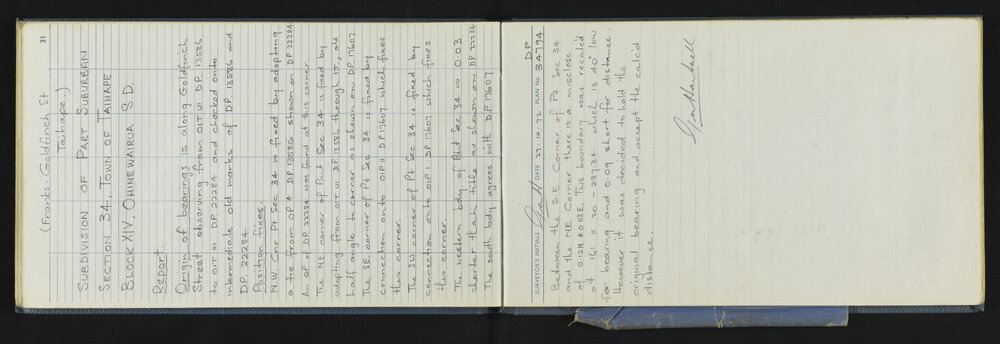 31
(Franks. Goldfinch St
Taihape.)
SUBDIVISION OF PART SUBURBAN
SECTION 34, TOWN OF TAIHAPE
BLOCK XIV. OHINEWAIRUA S.D.
Report
Origin of bearings is along Goldfinch
Street observing from OIT VI DP. 13586
to OIT III DP. 22284 and checked onto
intermediate old marks of DP. 13586 and
DP 22284.
Position fixes.
N.W. Cnr Pt Sec 34 is fixed by adopting
a tie from OP DP 13586 shown on DP 22284
An OP DP 22284 was found at this corner.
The NE corner of Part Sec 34 is fixed by
adopting from OIT VI DP. 13586 through IT, old
half angle to corner as shown on DP. 17607.
The SE. corner of Pt Sec 34 is fixed by
connection onto OIP II DP. 17607 which fixes
this corner.
The SW corner of Pt Sec 34 is fixed by
connection onto OIP I DP. 17607 which fixes
this corner.
The western body of Part Sec 34 is 0.03
shorter than title as shown on DP 22284
The south body agrees with DP 17607
SURVEYOR'S INITIALS DATE 27.10.72 PLAN NO. DP 34794
Between the S.E Corner of Pt Sec 34
and the NE Corner there is a misclose
of 0.12N 0.08E. This boundary was recalc'd
at 161° 11' 20" - 287.34 which is 40" low
for bearing and 0.09 short for distance.
However it was decided to hold the
original bearing and accept the calc'd
distance.